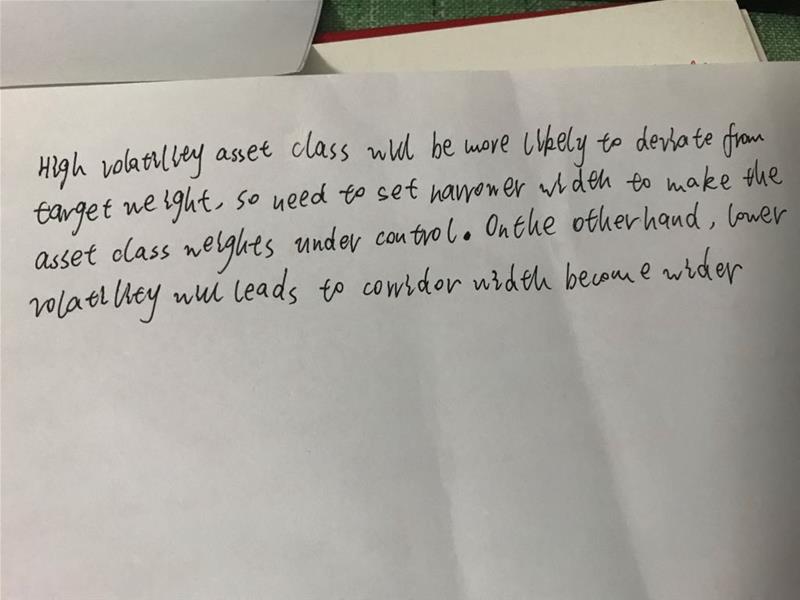 High volatility asset class will be more likely to deviate from
target weight, so need to set narrower width to make the
asset class weights under control. On the otherhand, lower
volatility will leads to corridor width become wider